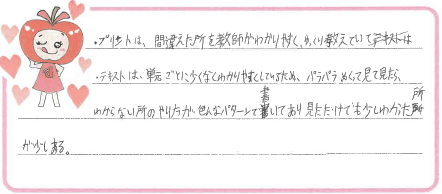 ・プリントは、間違えた所を教師がわかりやすく、ゆっくり教えていて
・テキストは、単元ごとに少なくわかりやすくしているため、パラパラめくって見て見たら、
わからない所のやり方が色んなパターンで書いてあり見ただけでも少しわかった所
が少しある。